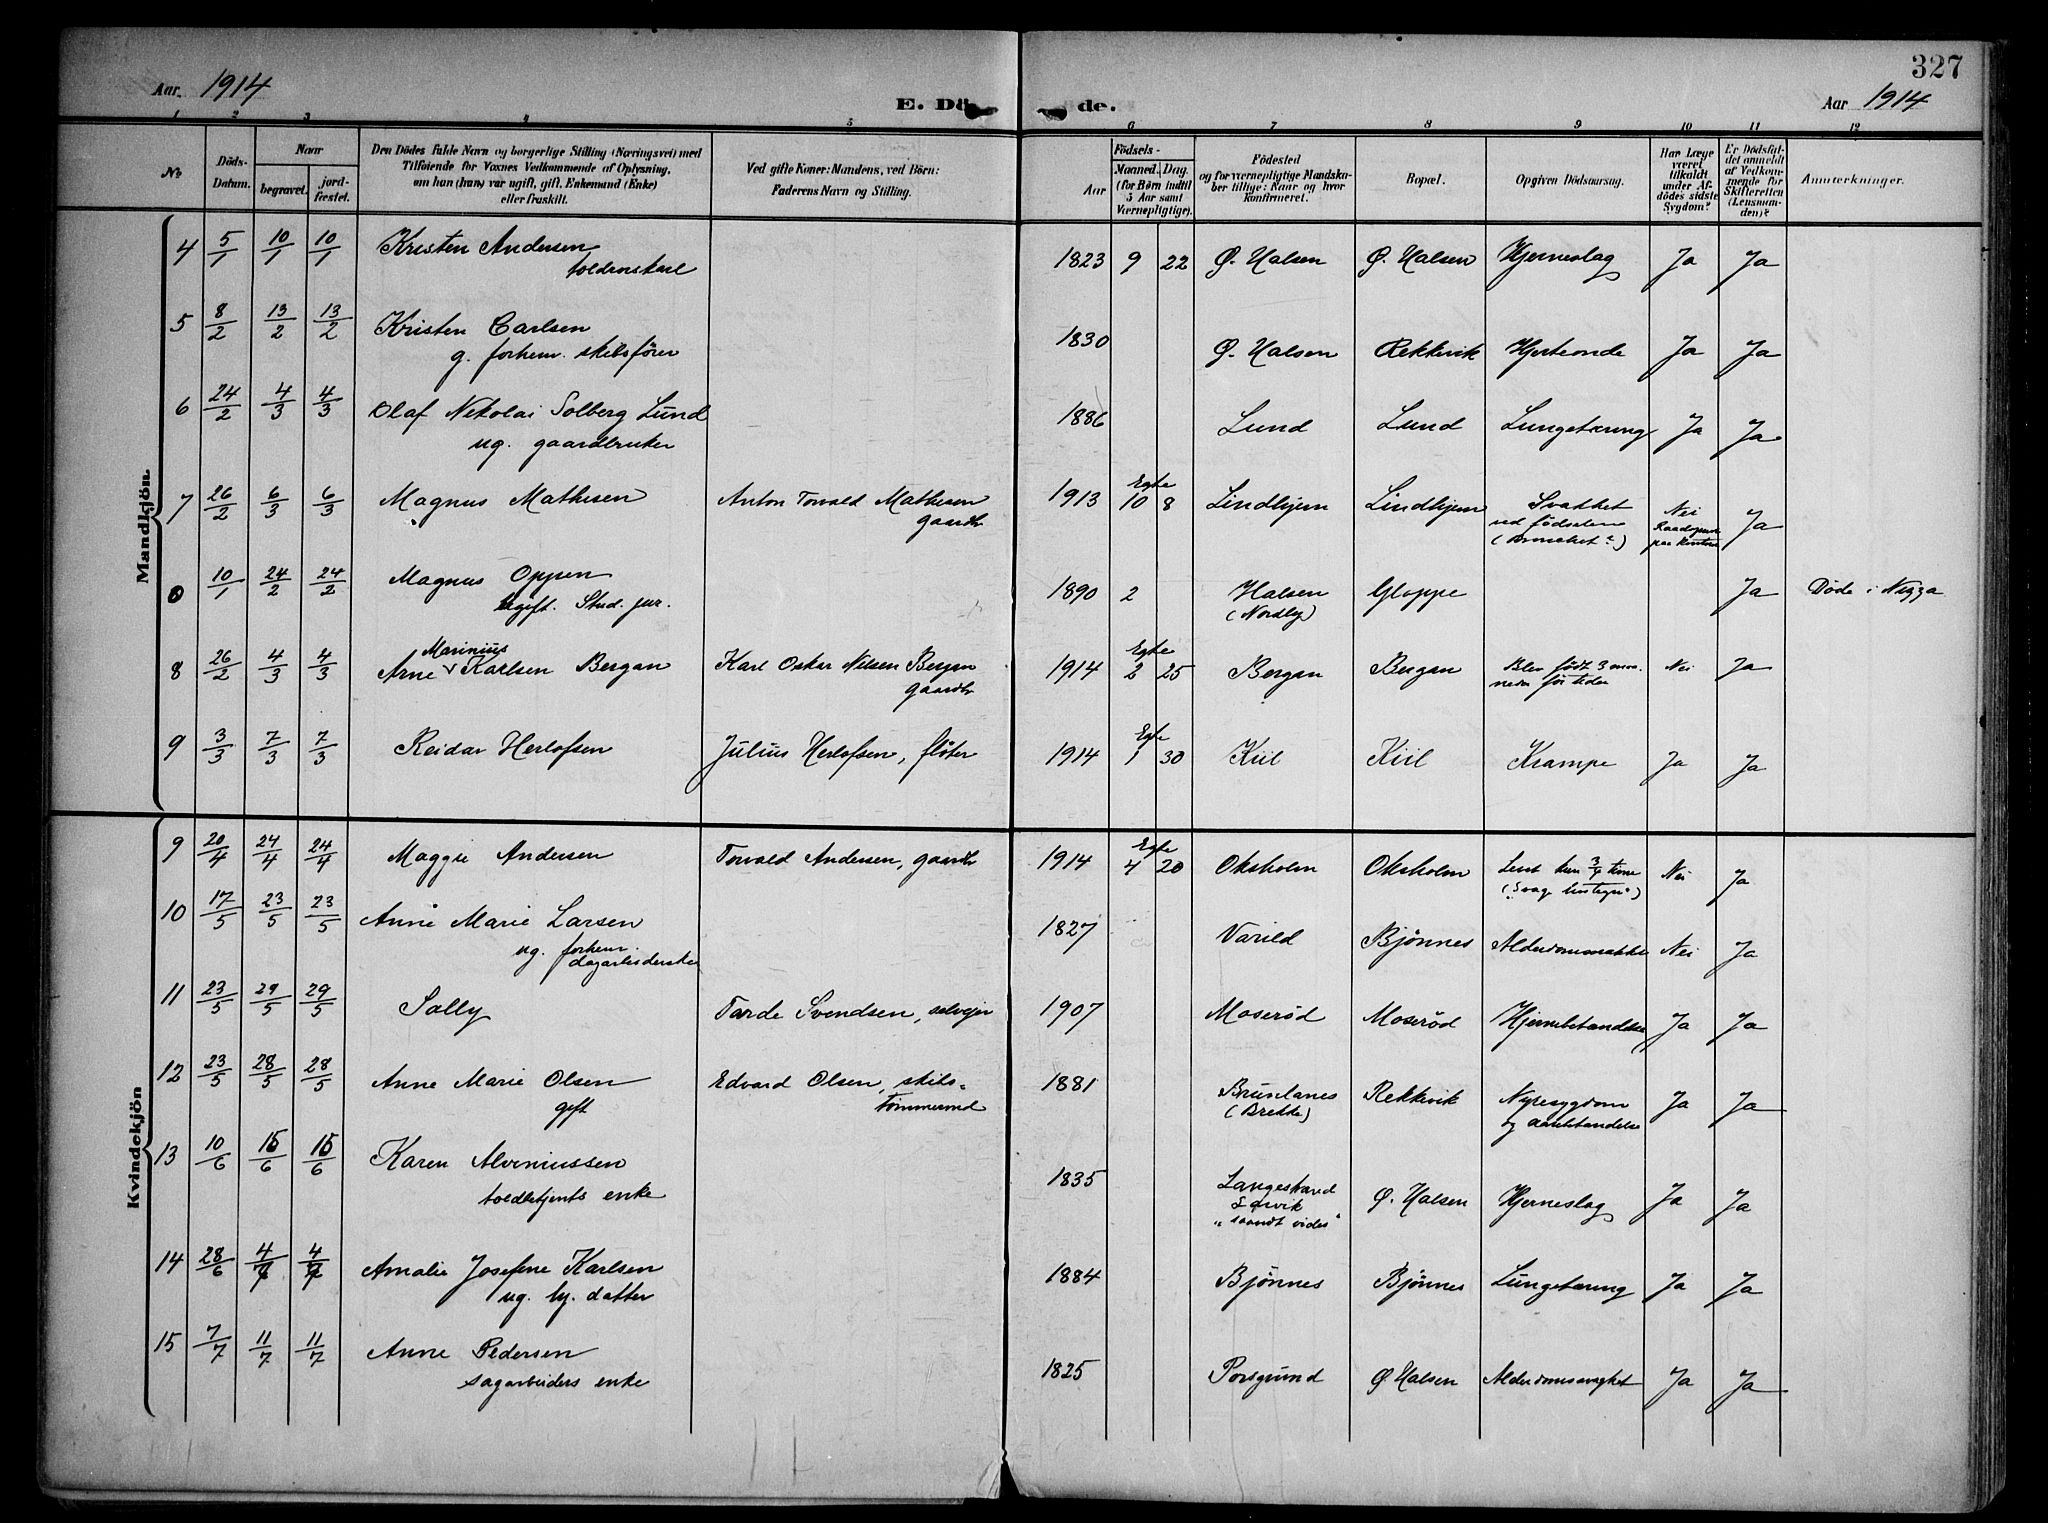 327
Aar 1914
E. Dö de.
Aar 1914
1 2 3 4 5 6 7 8 9 10 11 12
No
Döds-Datum.
Naar
begravet.
jord-fæstet.
Den Dödes fulde Navn og borgerlige Stilling (Næringsvei) med
Tilföiende for Voxnes Vedkommende af Oplysning,
om han (hun) var ugift, gift, Enkemand (Enke)
eller fraskilt.
Ved gifte Koner: Mandens, ved Börn:
Faderens Navn og Stilling.
Födsels-
Aar
Maaned. Dag.
(for Börn indtil
5 Aar samt
Værnepligtige).
Födested
og for værnepligtige Mandska-
ber tillige: Naar og hvor
konfirmeret.
Bopæl.
Opgiven Dödsaarsag.
Har Læge
været
tilkaldt
under Af-
dödes sidste
Sygdom?
Er Dödsfal-
det anmeldt
af Vedkom-
mende for
Skifteretten
(Lensman-
den)?
Anmærkninger.
Mandkjön.
4 5/1 10/1 10/1 Kristen Andersen 1823 9 22 Ø. Halsen Ø. Halsen Hjerneslag Ja Ja
5 8/2 13/2 13/2 Kristen Carlsen 1830 Ø. Halsen Rekkevik Hjerteonde Ja Ja
g. forhenv. skibsfører
6 24/2 4/3 4/3 Olaf Nikolai Solberg Lund 1886 Lund Lund Lungetæring Ja Ja
ug. gaardbruker
7 26/2 6/3 6/3 Magnus Mathisen Anton Torvald Mathisen 1913 Egte 10 8 Lindhjem Lindhjem Svakhet Nei Ja
gaardbr ved fødselen
(Bronchit?)
0 10/1 24/2 24/2 Magnus Oppen 1890 2 Halsen Gloppe Ja Døde i Nizza
ugift. Stud. jur. (Nordby)
8 26/2 4/3 4/3 Arne Marinius Karlsen Bergan Karl Oskar Nilsen Bergan 1914 Egte 2 25 Bergan Bergan Blev født 3 maa- Nei Ja
gaardbr neder før tiden
9 3/3 7/3 7/3 Reidar Herlofsen Julius Herlofsen, fløter 1914 Egte 1 30 Kiil Kiil Krampe Ja Ja
Kvindekjön
9 20/4 24/4 24/4 Maggie Andersen Torvald Andersen, gaardbr 1914 Egte 4 20 Oksholm Oksholm Levet kun 3/4 time Nei Ja
10 17/5 23/5 23/5 Anne Marie Larsen 1827 Varild Bjønnes Alderdomssvakhet Nei Ja
ug. forhenv.
dagarbeiderske
11 23/5 29/5 29/5 Sally Tarde Svendsen, selveier 1907 Moserød Moserød Hjernebetændelse Ja Ja
12 23/5 28/5 28/5 Anne Marie Olsen Edvard Olsen, skibs- 1881 Brunlanes Rekkevik Nyresygdom Ja Ja
gift tømmermd (Brekke) og
13 10/6 15/6 15/6 Karen Alverniussen 1835 Langestrand Ø. Halsen Hjerneslag Ja Ja
toldbetjents enke Larvik
"saavidt vides"
14 28/6 4/7 4/7 Amalie Josefine Karlsen 1884 Bjønnes Bjønnes Lungetæring Ja Ja
ug. hj. datter
15 7/7 11/7 11/7 Anne Pedersen 1825 Porsgrund Ø Halsen Alderdomssvaghet Ja Ja
sagarbeiders enke